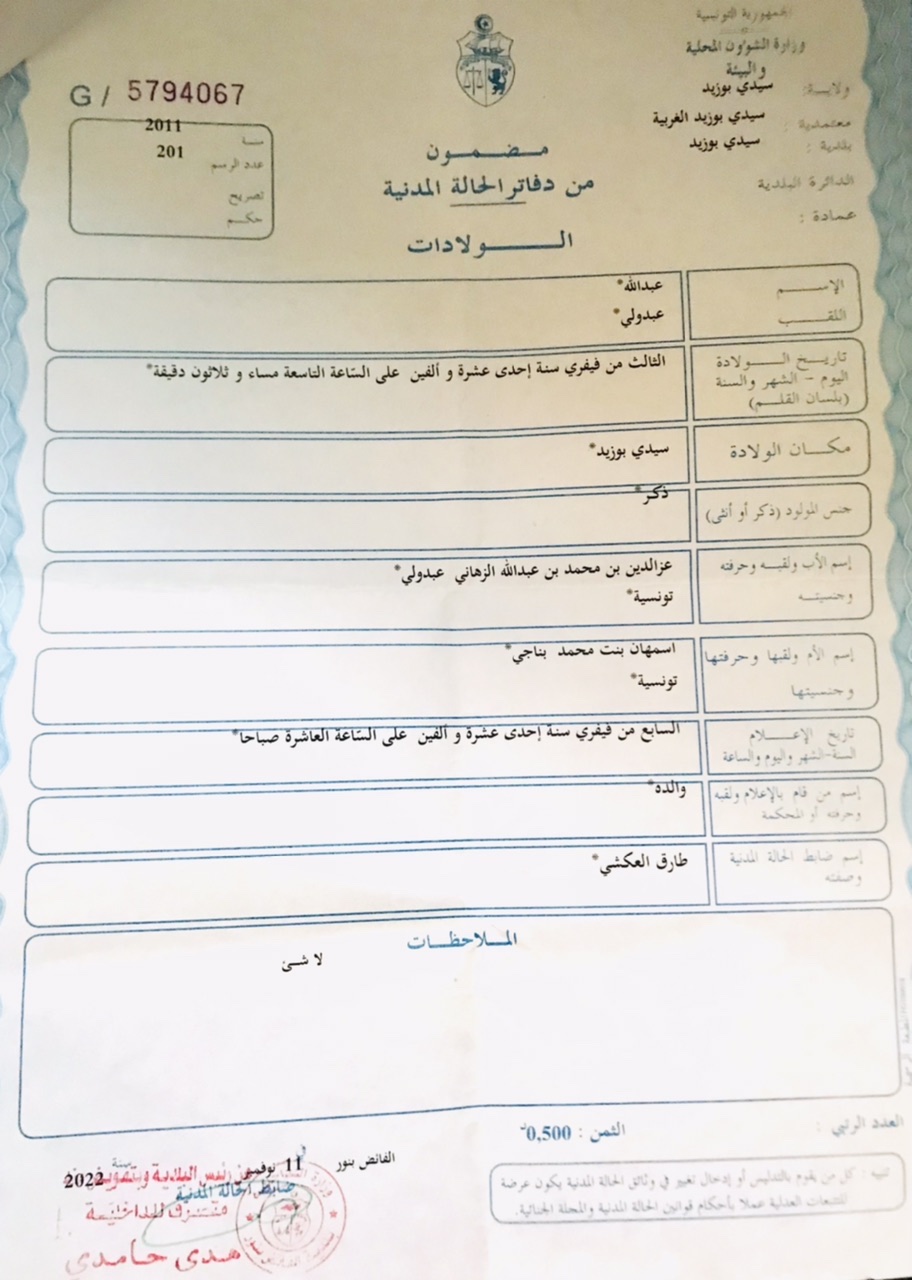 الجمهورية التونسية
وزارة الشؤون المحلية
والبيئة
ولاية: سيدي بوزيد
معتمدية: سيدي بوزيد الغربية
بلدية: سيدي بوزيد
الدائرة البلدية
عمادة:
G/ 5794067
سنة 2011
عدد الرسم 201
تصريح
حكم
مضمون
من دفاتر الحالة المدنية
الولادات
الإسم عبدالله*
اللقب عبدولي*
تاريخ الولادة
اليوم - الشهر والسنة
(بلسان القلم)
الثالث من فيفري سنة إحدى عشرة و ألفين على السّاعة التاسعة مساء و ثلاثون دقيقة*
مكان الولادة سيدي بوزيد*
جنس المولود (ذكر أو أنثى) ذكر*
إسم الأب ولقبه وحرفته عزالدين بن محمد بن عبدالله الزهاني عبدولي*
وجنسيته تونسية*
إسم الأم ولقبها وحرفتها اسمهان بنت محمد بناجي*
وجنسيتها تونسية*
تاريخ الإعلام
السنة-الشهر واليوم والساعة
السابع من فيفري سنة إحدى عشرة و ألفين على السّاعة العاشرة صباحا*
إسم من قام بالإعلام ولقبه والده*
وحرفته أو المحكمة
إسم ضابط الحالة المدنية طارق العكشي*
وصفته
الملاحظات
لا شئ
العدد الرتبي :
الثمن : 0,500د
تنبيه : كل من يقوم بالتدليس أو إدخال تغيير في وثائق الحالة المدنية يكون عرضة
للتتبعات العدلية عملا بأحكام قوانين الحالة المدنية والمجلة الجنائية.
الفائض بنور في 11 نوفمبر سنة 2022
عن رئيس البلدية وبتفويض
ضابط الحالة المدنية
هدى حامدي